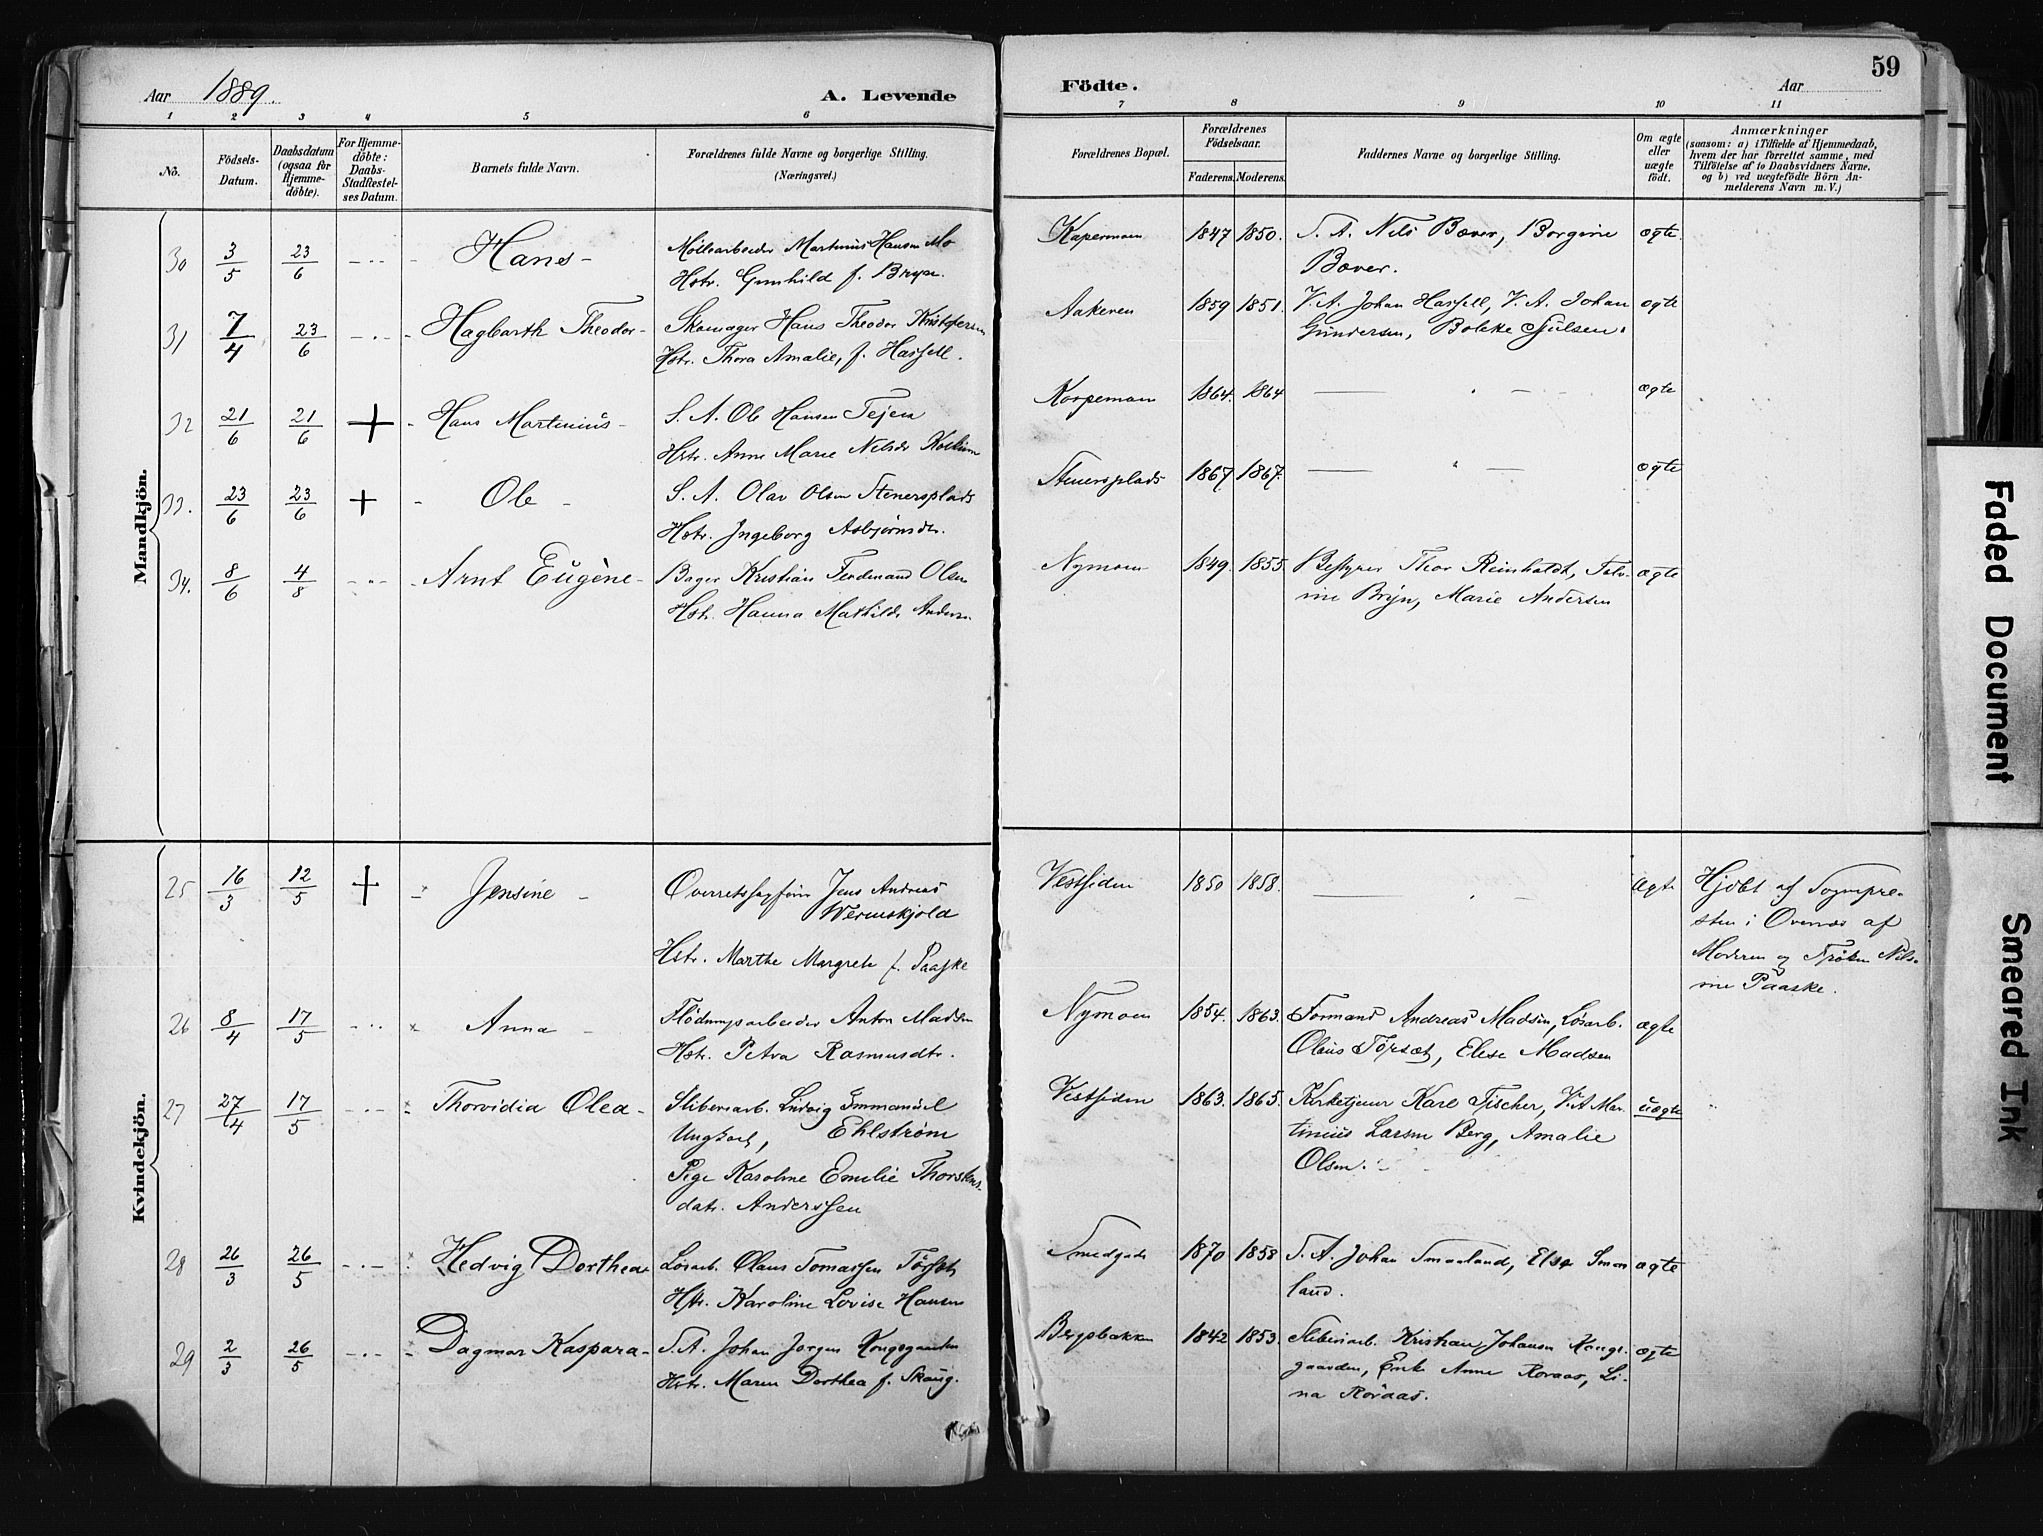 59
Aar 1889. A. Levende Födte. Aar
1 2 3 4 5 6 7 8 9 10 11
No. Födsels-Datum. Daabsdatum (ogsaa for Hjemmedöbte). For Hjemmedöbte: Daabs-Stadfestelses Datum. Barnets fulde Navn. Forældrenes fulde Navne og borgerlige Stilling. (Næringsvei.) Forældrenes Bopæl. Forældrenes Födselsaar. Faderens. Moderens. Faddernes Navne og borgerlige Stilling. Om ægte eller uægte födt. Anmærkninger (saasom: a) i Tilfælde af Hjemmedaab, hvem der har forrettet samme, med Tilföielse af to Daabsvidners Navne, og b) ved uægtefödte Börn Anmelderens Navn m. V.)
Mandkjön.
30 3/5 23/6 Hans Møllearbeider Martinius Hansen Mo 1847 1850. S. A. Nils Bæver, Borgine ægte
Hstr. Gunhild f. Bryn. Bæver.
31 7/4 23/6 Hagbarth Theodor Skomager Hans Theodor Aakeren 1859 1851. V. A. Johan Hassell, V. A. Johan ægte
Hstr. Thora Amalie, f. Hassell. Gundersen, Bolette
32 21/6 21/6 + Hans Martinius S. A. Ole Hansen Tejen 1864. 1864 ægte
Hstr. Anne Marie Nilsdr
33. 23/6 23/6 + Ole S. A. Olav Olsen Stenersplads Stenersplads 1867 1867. ægte
Hstr. Ingeborg Asbjørnsdtr.
34. 8/6 4/8 Arnt Eugène Bager Kristian Ferdinand Olsen Nymoen 1849. 1855 Bestyrer Thor Reinholdt, ægte
Hstr. Hanna Mathilde Bryn, Marie Andersen
Kvindekjön.
25 16/3 12/5 + Jensine Overretssagfører Jens Andreas Vestsiden 1850 1858. ægte Hjdbt af Sognepre-
Wernskjold sten i af
Hstr. Marthe Margrete f. Paaske Moderen og Frøken Nils-
ine Paaske.
26 8/4 17/5 Anna Flødningsarbeider Anton Madsen Nymoen 1854. 1863. Formand Andreas Madsen, Løsarb. ægte
Hstr. Petra Rasmusdtr. Olaus Torsæt, Elise Madsen
27 27/4 17/5 Thorvidia Olea Sliberiarb. Ludvig Emmanuel Vestsiden 1863. 1865. Kirketjener Karl Fischer, V. A Mar- uægte
Ungkarl, Ehlstrøm tinius Larsen Berg, Amalie
Pige Karoline Emilie Thorstens- Olsen.
datr. Anderssen
28 26/3 26/5 Hedvig Dorthea Løsarb. Olaus Tomassen Torsæt Smedgade 1870 1858 S. A. Johan Smaaland, Else Smaa- ægte
Hstr. Karoline Lovise Hansen land.
29 2/3 26/5 Dagmar Kaspara S. A. Johan Jørgen Kongsgaarden Bergsbakken 1842 1853. Sliberiarb. Kristian Johansen Kongs- ægte
Hstr. Maren Dorthea f. Skaug. gaarden, Enke Anne Roraas, Li-
na Roraas.
Faded Document
Smeared Ink